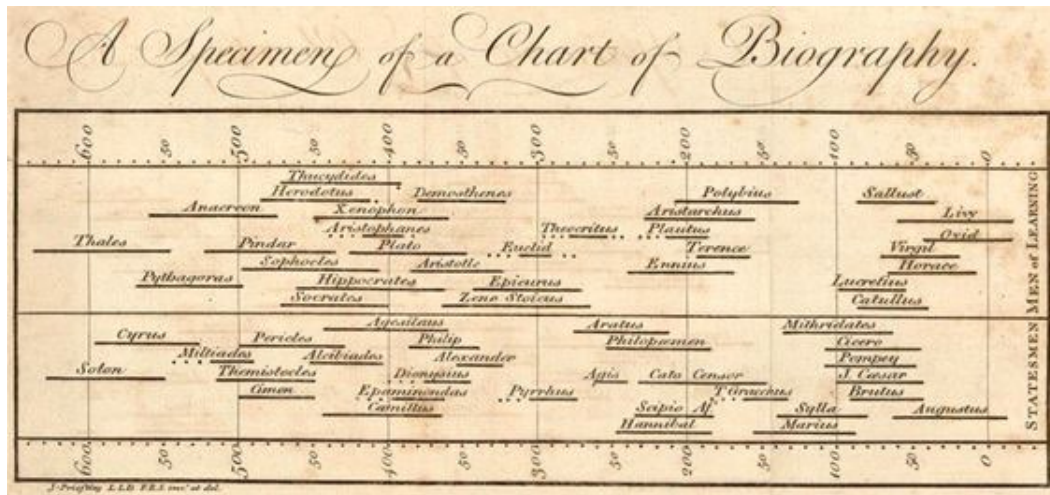 A Specimen of a Chart of Biography.
600 50 500 50 400 50 300 50 200 50 100 50 0
Thucydides
Herodotus Demosthenes Polybius Sallust
Anacreon Xenophon Aristarchus Livy
Aristophanes Theocritus Plautus Ovid
Thales Pindar Plato Euclid Terence Virgil
Sophocles Aristotle Ennius Horace
Pythagoras Hippocrates Epicurus Lucretius
Socrates Zeno Stoicus Catullus
MEN of LEARNING
Agesilaus Aratus Mithridates
Cyrus Pericles Philip Philopæmen Cicero
Miltiades Alcibiades Alexander Pompey
Solon Themistocles Dionysius Agis Cato Censor J. Cæsar
Cimon Epaminondas Pyrrhus T. Gracchus Brutus
Camillus Scipio Af. Sylla Augustus
Hannibal Marius
STATESMEN
600 50 500 50 400 50 300 50 200 50 100 50 0
J. Priestley L.L.D. F.R.S. inv.t et del.